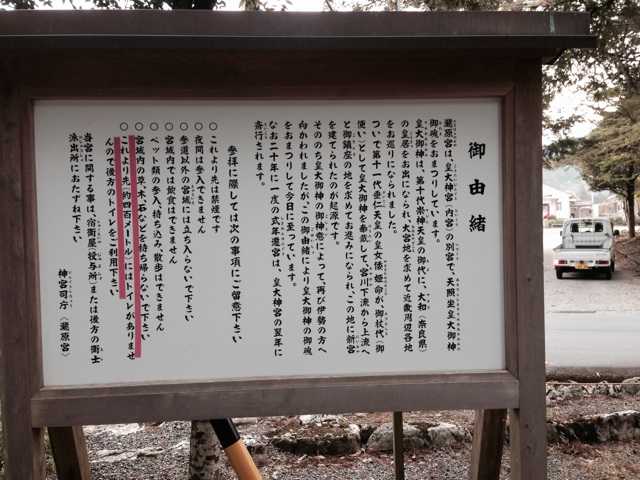 御由緒
瀧原宮は、皇大神宮(内宮)の別宮で、天照坐皇大御神
御魂をおまつりしています。
皇大御神は、第十代崇神天皇の御代に、大和(奈良県)
の皇居をお出になられ、大宮地を求めて近畿周辺各地
をお巡りになられました。
ついで第十一代垂仁天皇の皇女倭姫命が、御杖代(御
使い)として皇大御神を奉戴して、宮川下流から上流へ
と御鎮座の地を求めてお進みになられ、この地に新宮
を建てられたのが起源です。
そののち皇大御神の御神意によって、再び伊勢の方へ
向かわれましたが、この御由緒により皇大御神の御魂
をおまつりして今日に至っています。
なお二十年に一度の式年遷宮は、皇大神宮の翌年に
斎行されます。
参拝に際しては次の事項にご留意下さい
○これより先は禁煙です
○夜間は参入できません
○参道以外の宮域には立ち入らないで下さい
○宮域内では飲食はできません
○ペット類の参入、持ち込み、散歩はできません
○宮域内の草・木・石などを持ち帰らないで下さい
○これより先(約四百メートル)にはトイレがありませ
んので後方のトイレをご利用下さい
当宮に関する事は、宿衛屋(授与所)または後方の衛士
派出所におたずね下さい
神宮司庁(瀧原宮)